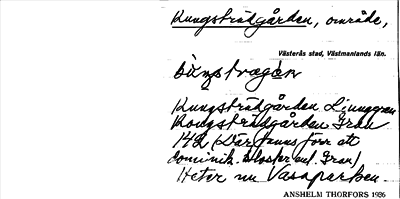 Kungsträdgården, område,
Västerås stad, Västmanlands län.
Kungsträdgården Linnggren
Kongsträdgården Grau
142 (Där fanns förr ett
dominik. kloster enl. Grau)
Heter nu Vasaparken.
ANSHELM THORFORS 1936